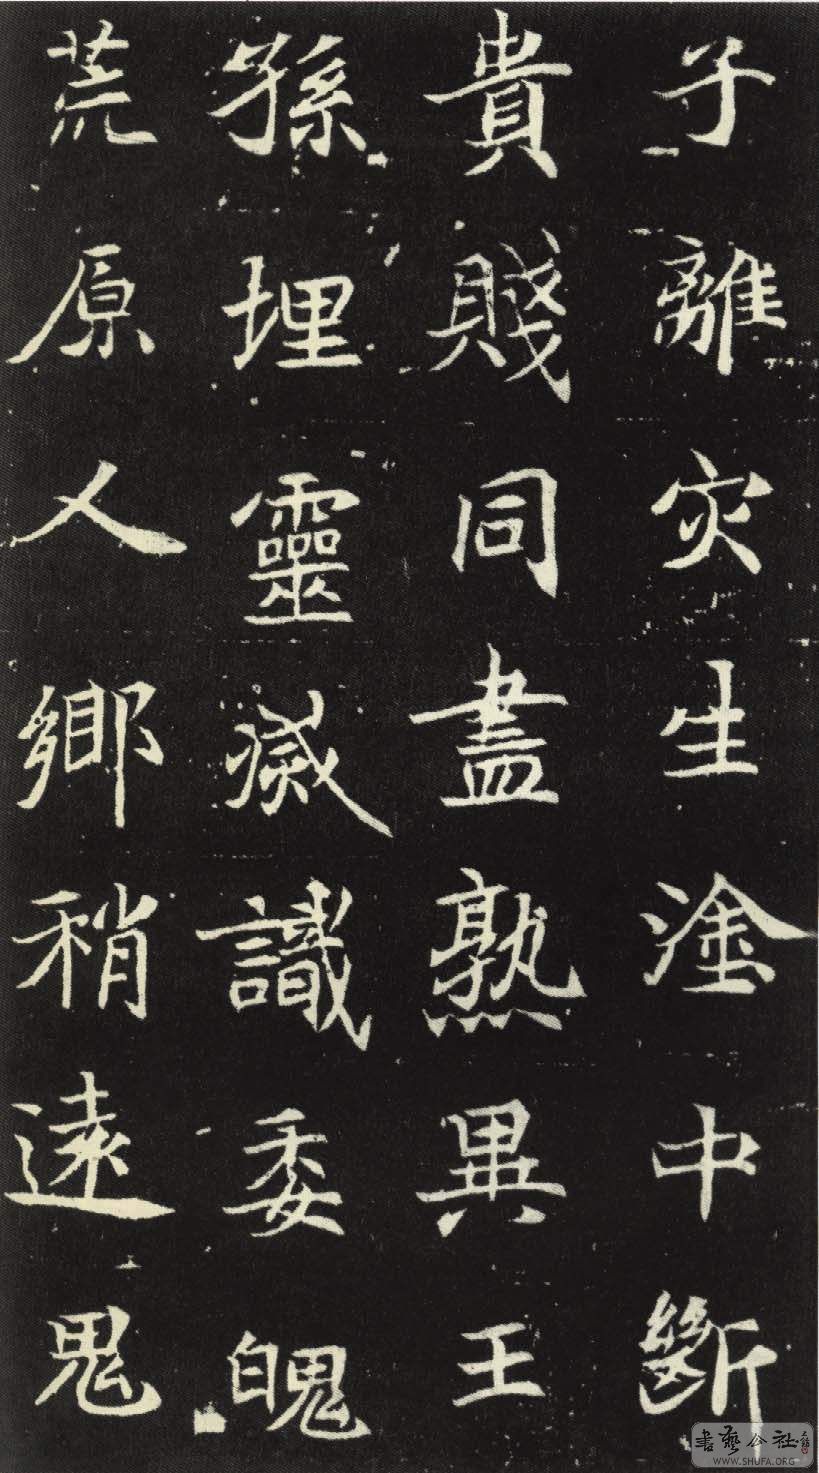 子離灾生塗中斷
貴賤同盡熟異王
孫埋靈滅識委魄
荒原人鄉稍遠鬼
書藝公社
WWW.SHUFA.ORG